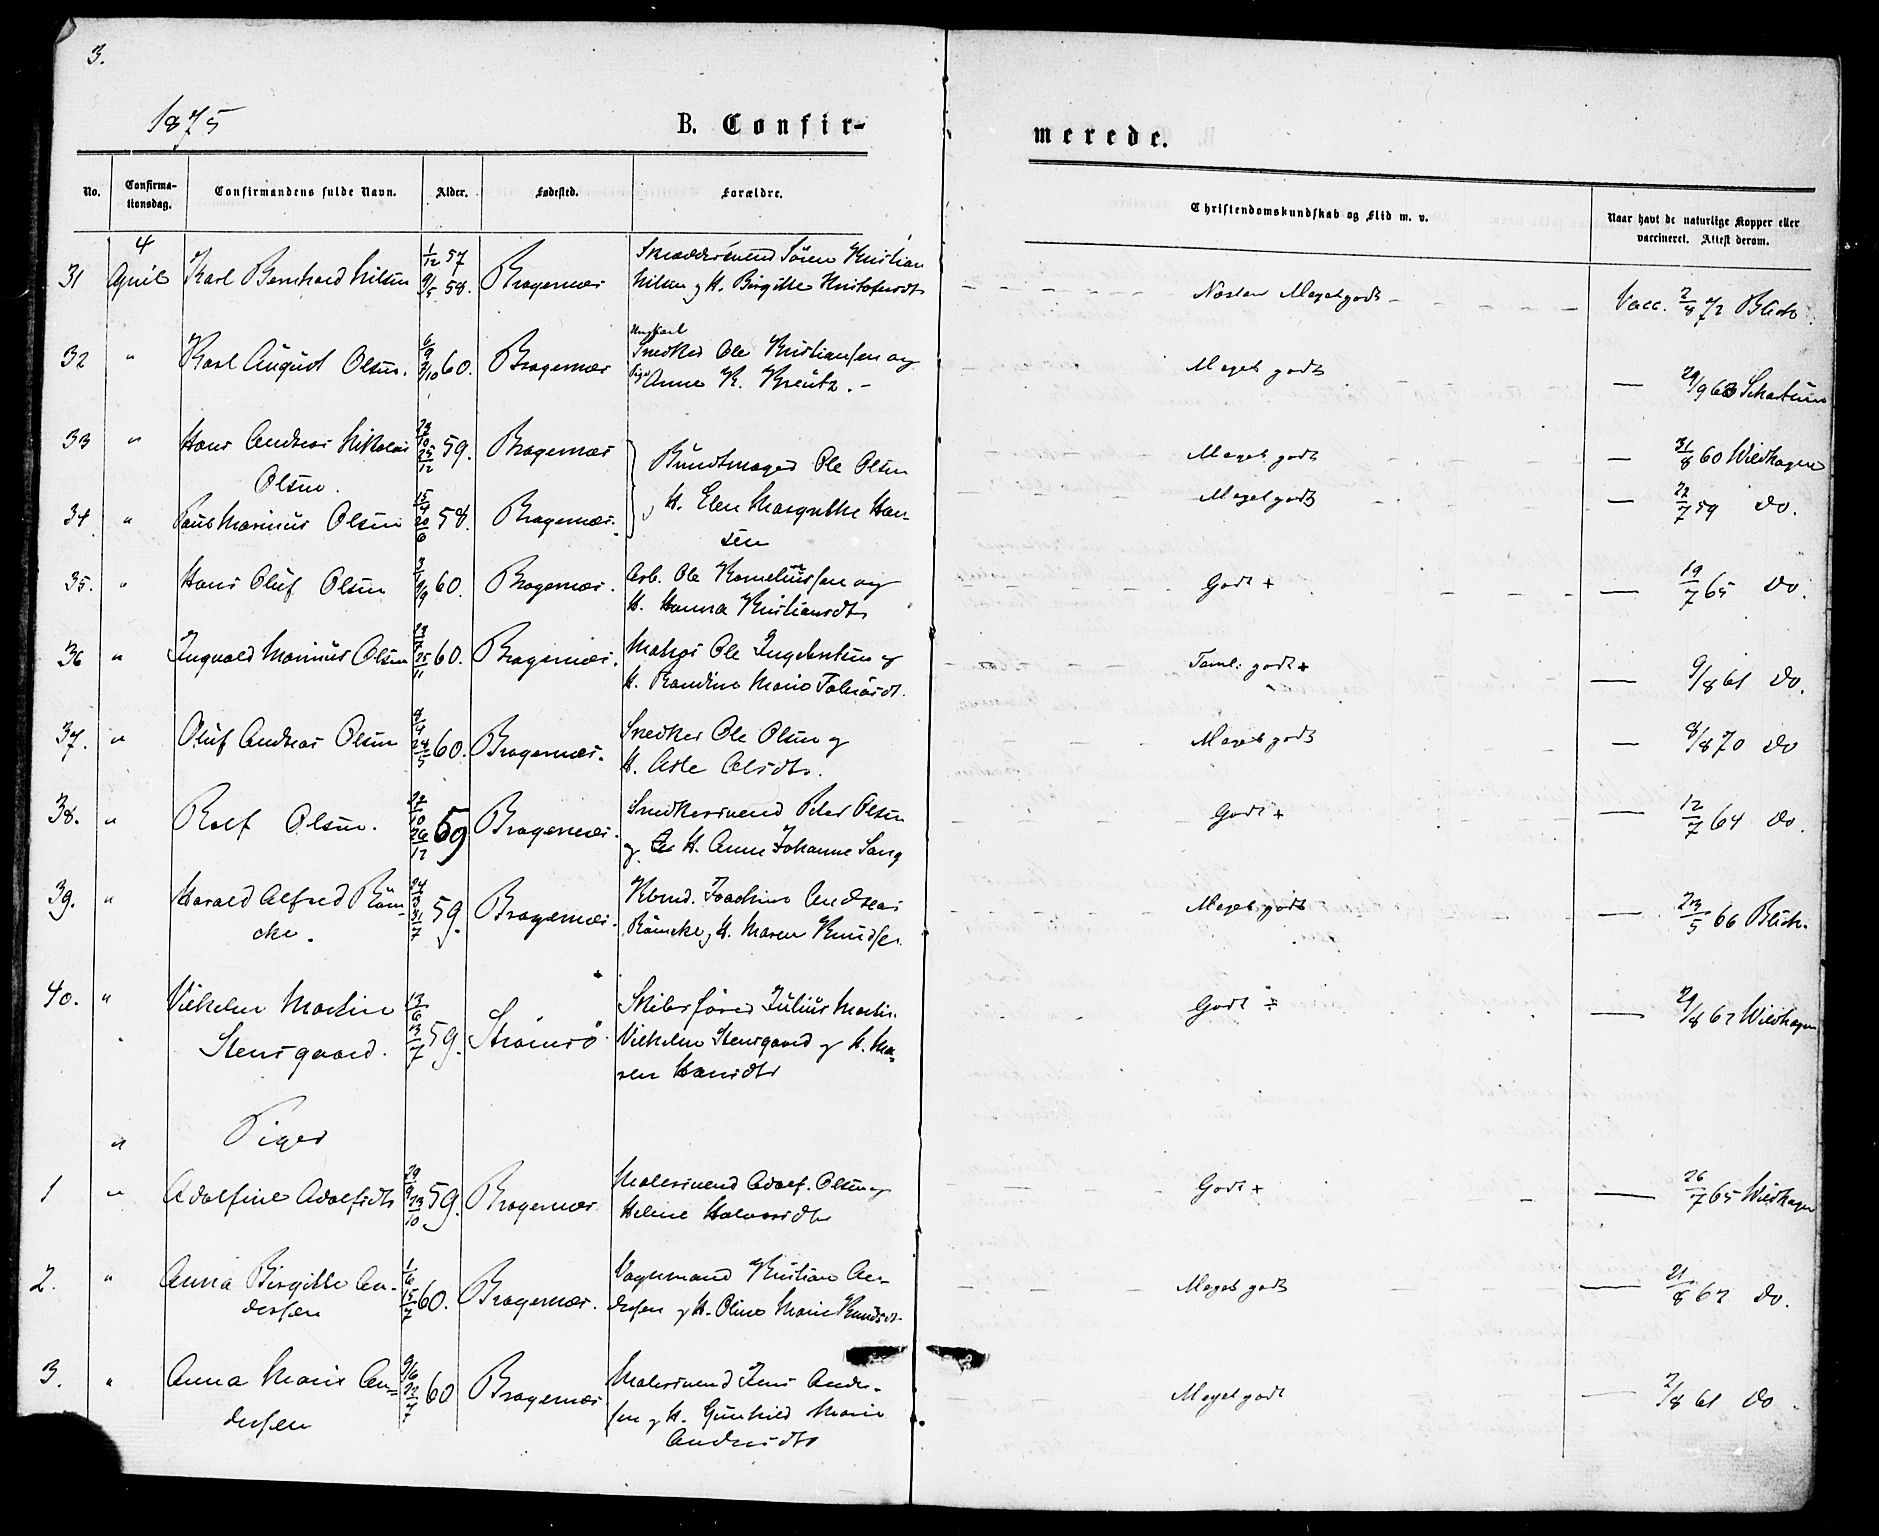 3.
1875
B. Confirmerede.
No. Confirmationsdag. Confirmandens fulde Navn. Alder. Fødested. Forældre. Christendomskundskab og Flid m. v. Naar havt de naturlige Kopper eller vaccineret. Attest derom.
31 4 April Karl Bernhard Nilsen 1/12 57 9/5 58. Bragernæs Skræddersvend Sören Kristian
Nilsen og H. Birgitte Kristofersdtr Næsten Meget godt Vacc. 2/8 72 Blich.
32 " Karl August Olsen. 6/9 60. Bragernæs Ungkarl Snedker Ole Kristiansen og
Pige Anne K. Kreutz. Meget godt — 29/9 63
33 " Hans Andreas Nikolai 25/12 59. Bragernæs Buntmager Ole Olsen Meget godt — 31/8 60 Wildhagen
Olsen.
34. " Paul Marinius Olsen 15/4 20/6 58. Bragernæs. og H. Elen Margrethe Han- Meget godt — 22/7 59 do.
sen
35. " Hans Oluf Olsen 60. Bragernæs. Arb. Ole Korneliussen og
H. Hanna Kristiansdtr Godt + — 19/7 65 do.
36 " Ingvald Marinius Olsen 25/11 60. Bragernæs. Matros Ole Ingebretsen og
H. Randine Marie Tolversdt. Taml. godt + — 9/8 61 do.
37. " Oluf Andreas Olsen 8/4 28/5 60. Bragernæs. Snedker Ole Olsen og
H. Olsdtr. Meget godt — 8/8 70 do
38. " Rolf Olsen. 27/10 26/12 59 Bragernæs. Snedkersvend Peder Olsen
og H. Anne Johanne Sang Godt + — 12/7 64 do.
39. " Harald Alfred Röm- 31/7 59. Bragernæs. Kbmd. Joachim Andreas
cke. Römcke og H. Maren Knudsen Meget godt — 23/5 66 Blich.
40. " Vilhelm Martin 13/6 13/7 59. Strömsö Skibsförer Julius Martin
Stensgaard. Vilhelm Stensgaard og H. Ma- Godt ÷ — 29/8 62 Wildhagen
ren Hansdtr
" Piger
1 " Adolfine Adolfsdtr 29/9 23/10 59. Bragernæs Malersvend Adolf Olsen og
Helene Halvorsdtr Godt + — 26/7 65 Wildhagen
2. " Anna Birgitte An- 1/6 15/7 60. Bragernæs. Vognmand Kristian An-
dersen dersen og H. Oline Marie Knudsdt. Meget godt — 21/8 62 do.
3. " Anna Marie An- 9/6 22/7 60 Bragernæs Malersvend Jens Ander-
dersen sen og H. Gunhild Marie Meget godt — 2/8 61 do
Andersdtr